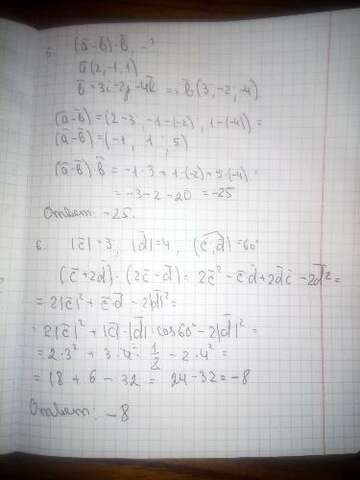 5. (ā-b̄)·b̄ -?
ā(2,-1,1)
b̄=3i-2j-4k => b̄(3,-2,-4)
(ā-b̄)=(2-3, -1-(-2), 1-(-4))=
(ā-b̄)=(-1, 1, 5)
(ā-b̄)·b̄=-1·3+1·(-2)+5·(-4)=
=-3-2-20=-25
Ответ: -25.
6. |c̄|=3, |d̄|=4, (c̄,d̄)=60°
(c̄+2d̄)·(2c̄-d̄)=2c̄²-c̄d̄+2d̄c̄-2d̄²=
=2|c̄|²+c̄d̄-2|d̄|²=
=2|c̄|²+|c̄|·|d̄| cos60°-2|d̄|²=
=2·3²+3·4·1/2-2·4²=
=18+6-32=24-32=-8
Ответ: -8